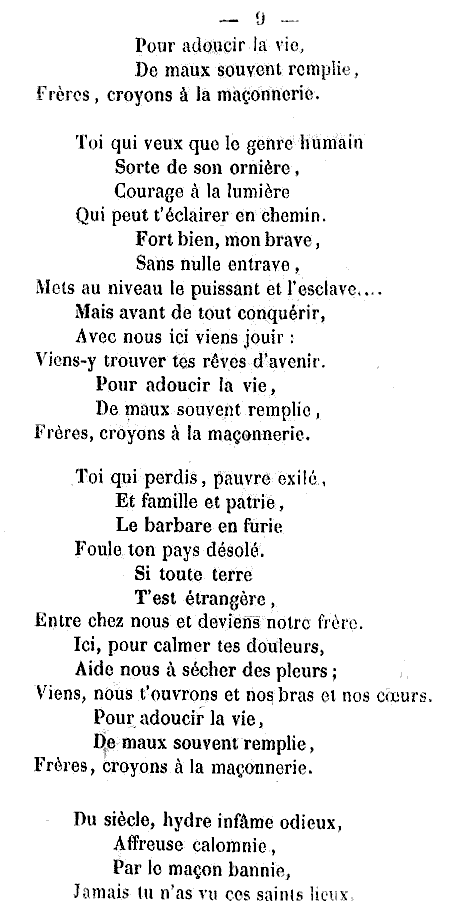 — 9 —
Pour adoucir la vie,
De maux souvent remplie,
Frères, croyons à la maçonnerie.
Toi qui veux que le genre humain
Sorte de son ornière,
Courage à la lumière
Qui peut t'éclairer en chemin.
Fort bien, mon brave,
Sans nulle entrave,
Mets au niveau le puissant et l'esclave....
Mais avant de tout conquérir,
Avec nous ici viens jouir :
Viens-y trouver tes rêves d'avenir.
Pour adoucir la vie,
De maux souvent remplie,
Frères, croyons à la maçonnerie.
Toi qui perdis, pauvre exilé,
Et famille et patrie,
Le barbare en furie
Foule ton pays désolé.
Si toute terre
T'est étrangère,
Entre chez nous et deviens notre frère.
Ici, pour calmer tes douleurs,
Aide nous à sécher des pleurs ;
Viens, nous t'ouvrons et nos bras et nos cœurs.
Pour adoucir la vie,
De maux souvent remplie,
Frères, croyons à la maçonnerie.
Du siècle, hydre infâme odieux,
Affreuse calomnie,
Par le maçon bannie,
Jamais tu n'as vu ces saints lieux.